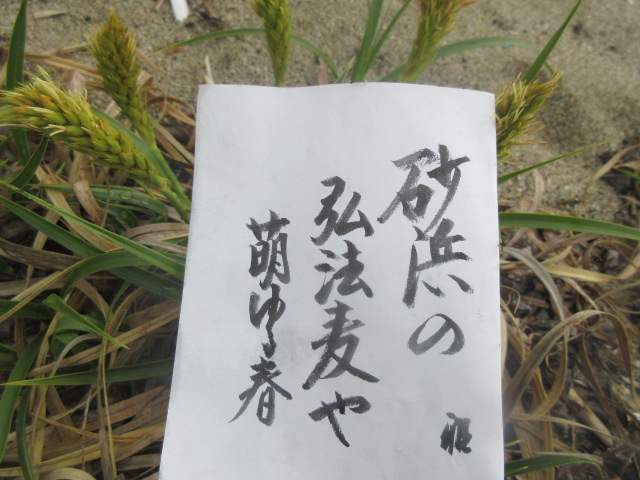 砂浜の
弘法麦や
萌ゆる春